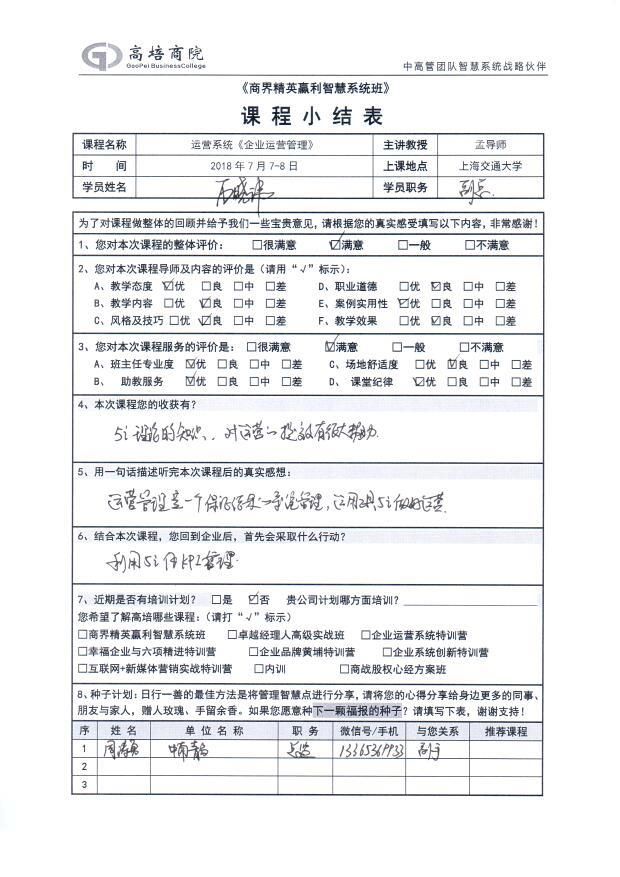 高培商院
GaoPei BusinessCollege
中高管团队智慧系统战略伙伴
《商界精英赢利智慧系统班》
课程小结表
课程名称 运营系统《企业运营管理》 主讲教授 孟导师
时 间 2018年7月7-8日 上课地点 上海交通大学
学员姓名 学员职务
为了对课程做整体的回顾并给予我们一些宝贵意见,请根据您的真实感受填写以下内容,非常感谢!
1、您对本次课程的整体评价: □很满意 ☑满意 □一般 □不满意
2、您对本次课程导师及内容的评价是(请用“√”标示):
A、教学态度 ☑优 □良 □中 □差 D、职业道德 □优 ☑良 □中 □差
B、教学内容 □优 ☑良 □中 □差 E、案例实用性 ☑优 □良 □中 □差
C、风格及技巧 □优 ☑良 □中 □差 F、教学效果 □优 ☑良 □中 □差
3、您对本次课程服务的评价是: □很满意 ☑满意 □一般 □不满意
A、班主任专业度 ☑优 □良 □中 □差 C、场地舒适度 □优 ☑良 □中 □差
B、 助教服务 ☑优 □良 □中 □差 D、课堂纪律 ☑优 □良 □中 □差
4、本次课程您的收获有?
的知识、对运营 有很大帮助
5、用一句话描述听完本次课程后的真实感想:
运营管理是一个 管理,
6、结合本次课程,您回到企业后,首先会采取什么行动?
利用 KPI管理
7、近期是否有培训计划? □是 ☑否 贵公司计划哪方面培训?
您希望了解高培哪些课程:(请打“√”标示)
□商界精英赢利智慧系统班 □卓越经理人高级实战班 □企业运营系统特训营
□幸福企业与六项精进特训营 □企业品牌黄埔特训营 □企业系统创新特训营
□互联网+新媒体营销实战特训营 □内训 □商战股权心经方案班
8、种子计划:日行一善的最佳方法是将管理智慧点进行分享,请将您的心得分享给身边更多的同事、
朋友与家人,赠人玫瑰、手留余香。如果您愿意种下一颗福报的种子?请填写下表,谢谢支持!
序 姓名 单位名称 职务 微信号/手机 与您关系 推荐课程
1 13365369933
2
3